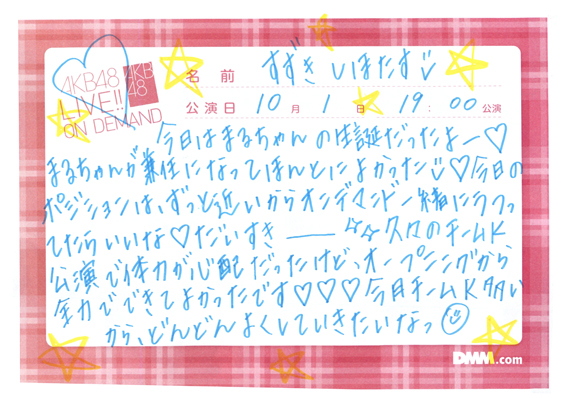 AKB48
LIVE!!
ON DEMAND
AKB
48
名 前 すずき しほたす
公演日 10月 1日 19:00公演
今日はまるちゃんの生誕だったよー♡
まるちゃんが兼任になってほんとによかった♡今日の
ポジションは、ずっと近いからオンデマンド一緒にうつっ
てたらいいな♡だいすきーー 久々のチームK
公演で体力が心配だったけど、オープニングから
全力でできてよかったです♡♡♡今日チームK多い
から、どんどんよくしていきたいなっ
DMM.com